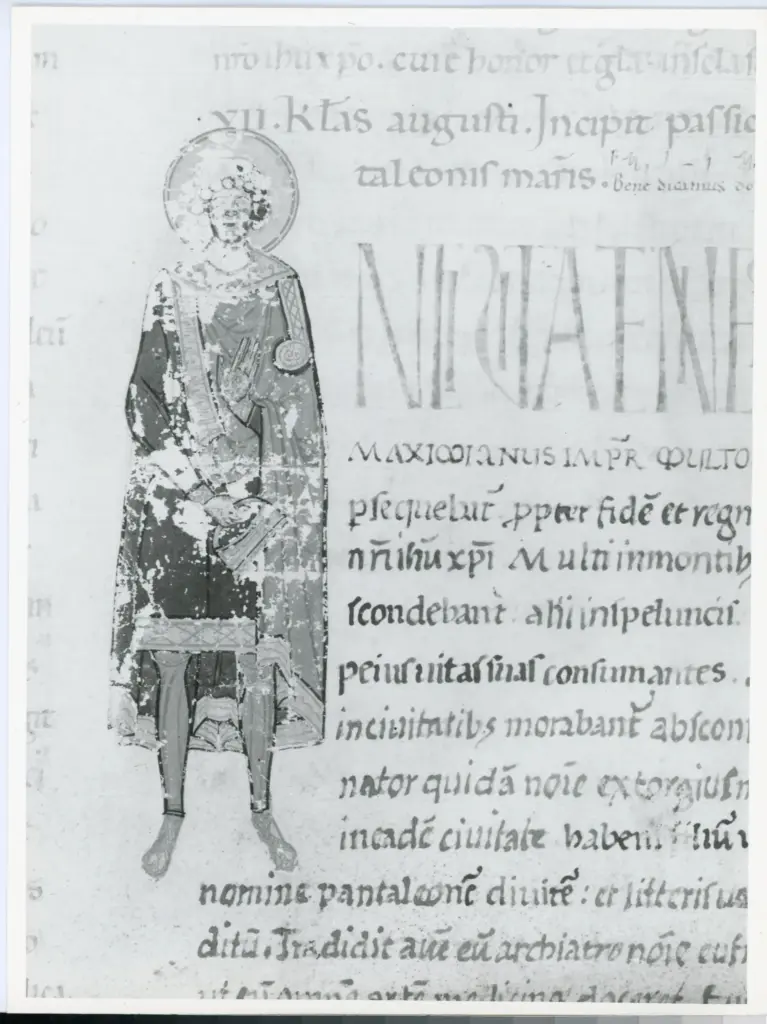 nr̄o ihu xp̄o. cui ē honor et gl̄a in sc̄la s
XII. Kl̄as augusti. Incipit passio
taleonis mar̄is. Benedicamus do
MAXIMIANUS IMP̄R MULTO
psequebat̄ ppter fidē et regn
nr̄i ihū xp̄i Multi in montib
scondebant alii in speluncis.
peius uitas suas consumantes.
in ciuitatibs morabant̄ abscon
nator quidā noīe extorgius n
in eadē ciuitate habens filiū u
nomine pantaleonē diuitē: et litteris
ditū. Tradidit autē eū archiatro noīe eufr
ut eū omnē artē medicina doceret.